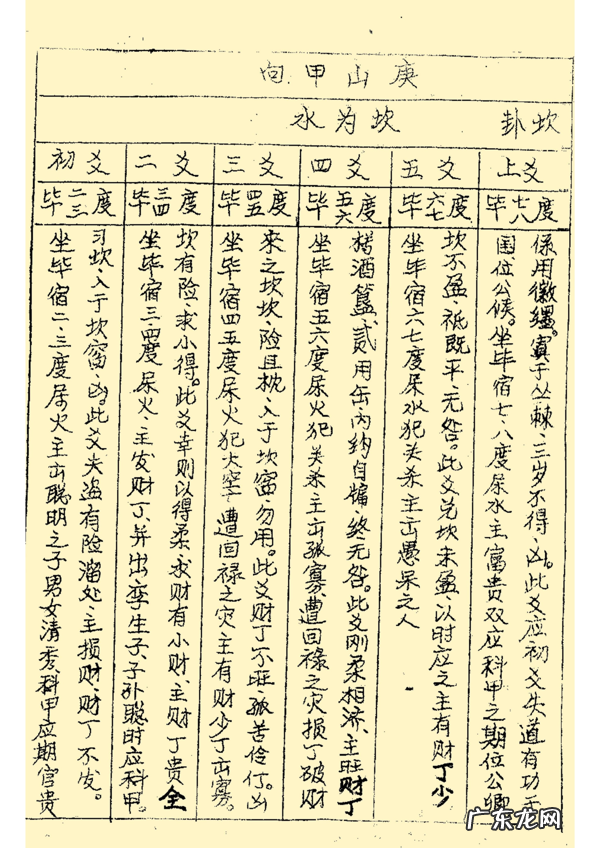 庚山甲向
坎卦
坎为水
上爻
毕七八度
係用徽纆。寘于丛棘、三岁不得、凶。此爻应初爻失道有功于
国位公候。坐毕宿七、八度屎水主富贵双应科甲之期位公卿
五爻
毕六七度
坎不盈、祗既平、无咎。此爻兑坎未盈、以时应之主有财丁少
坐毕宿六七度屎水犯关杀主出愚呆之人
四爻
毕五六度
樽酒簋、贰用缶内约自牖、终无咎。此爻刚柔相济、主旺财丁
坐毕宿五六度屎火犯关杀主出孤寡、遭回禄之灾损丁破财
三爻
毕四五度
来之坎坎、险且枕、入于坎窞、勿用。此爻财丁不旺、孤苦伶仃。凶
坐毕宿四五度屎火犯大空、遭回禄之灾主有财少丁出寡。
二爻
毕三四度
坎有险、求小得。此爻幸则以得柔、求财有小财、主财丁贵全
坐毕宿三、四度屎火、主发财丁、并出孪生子、子孙聪时应科甲。
初爻
毕二三度
习坎、入于坎窞、凶。此爻失盗有险溜处、主损财、财丁不发。
坐毕宿二、三度屎火主出聪明之子男女清秀、科甲应期官贵
广东龙网